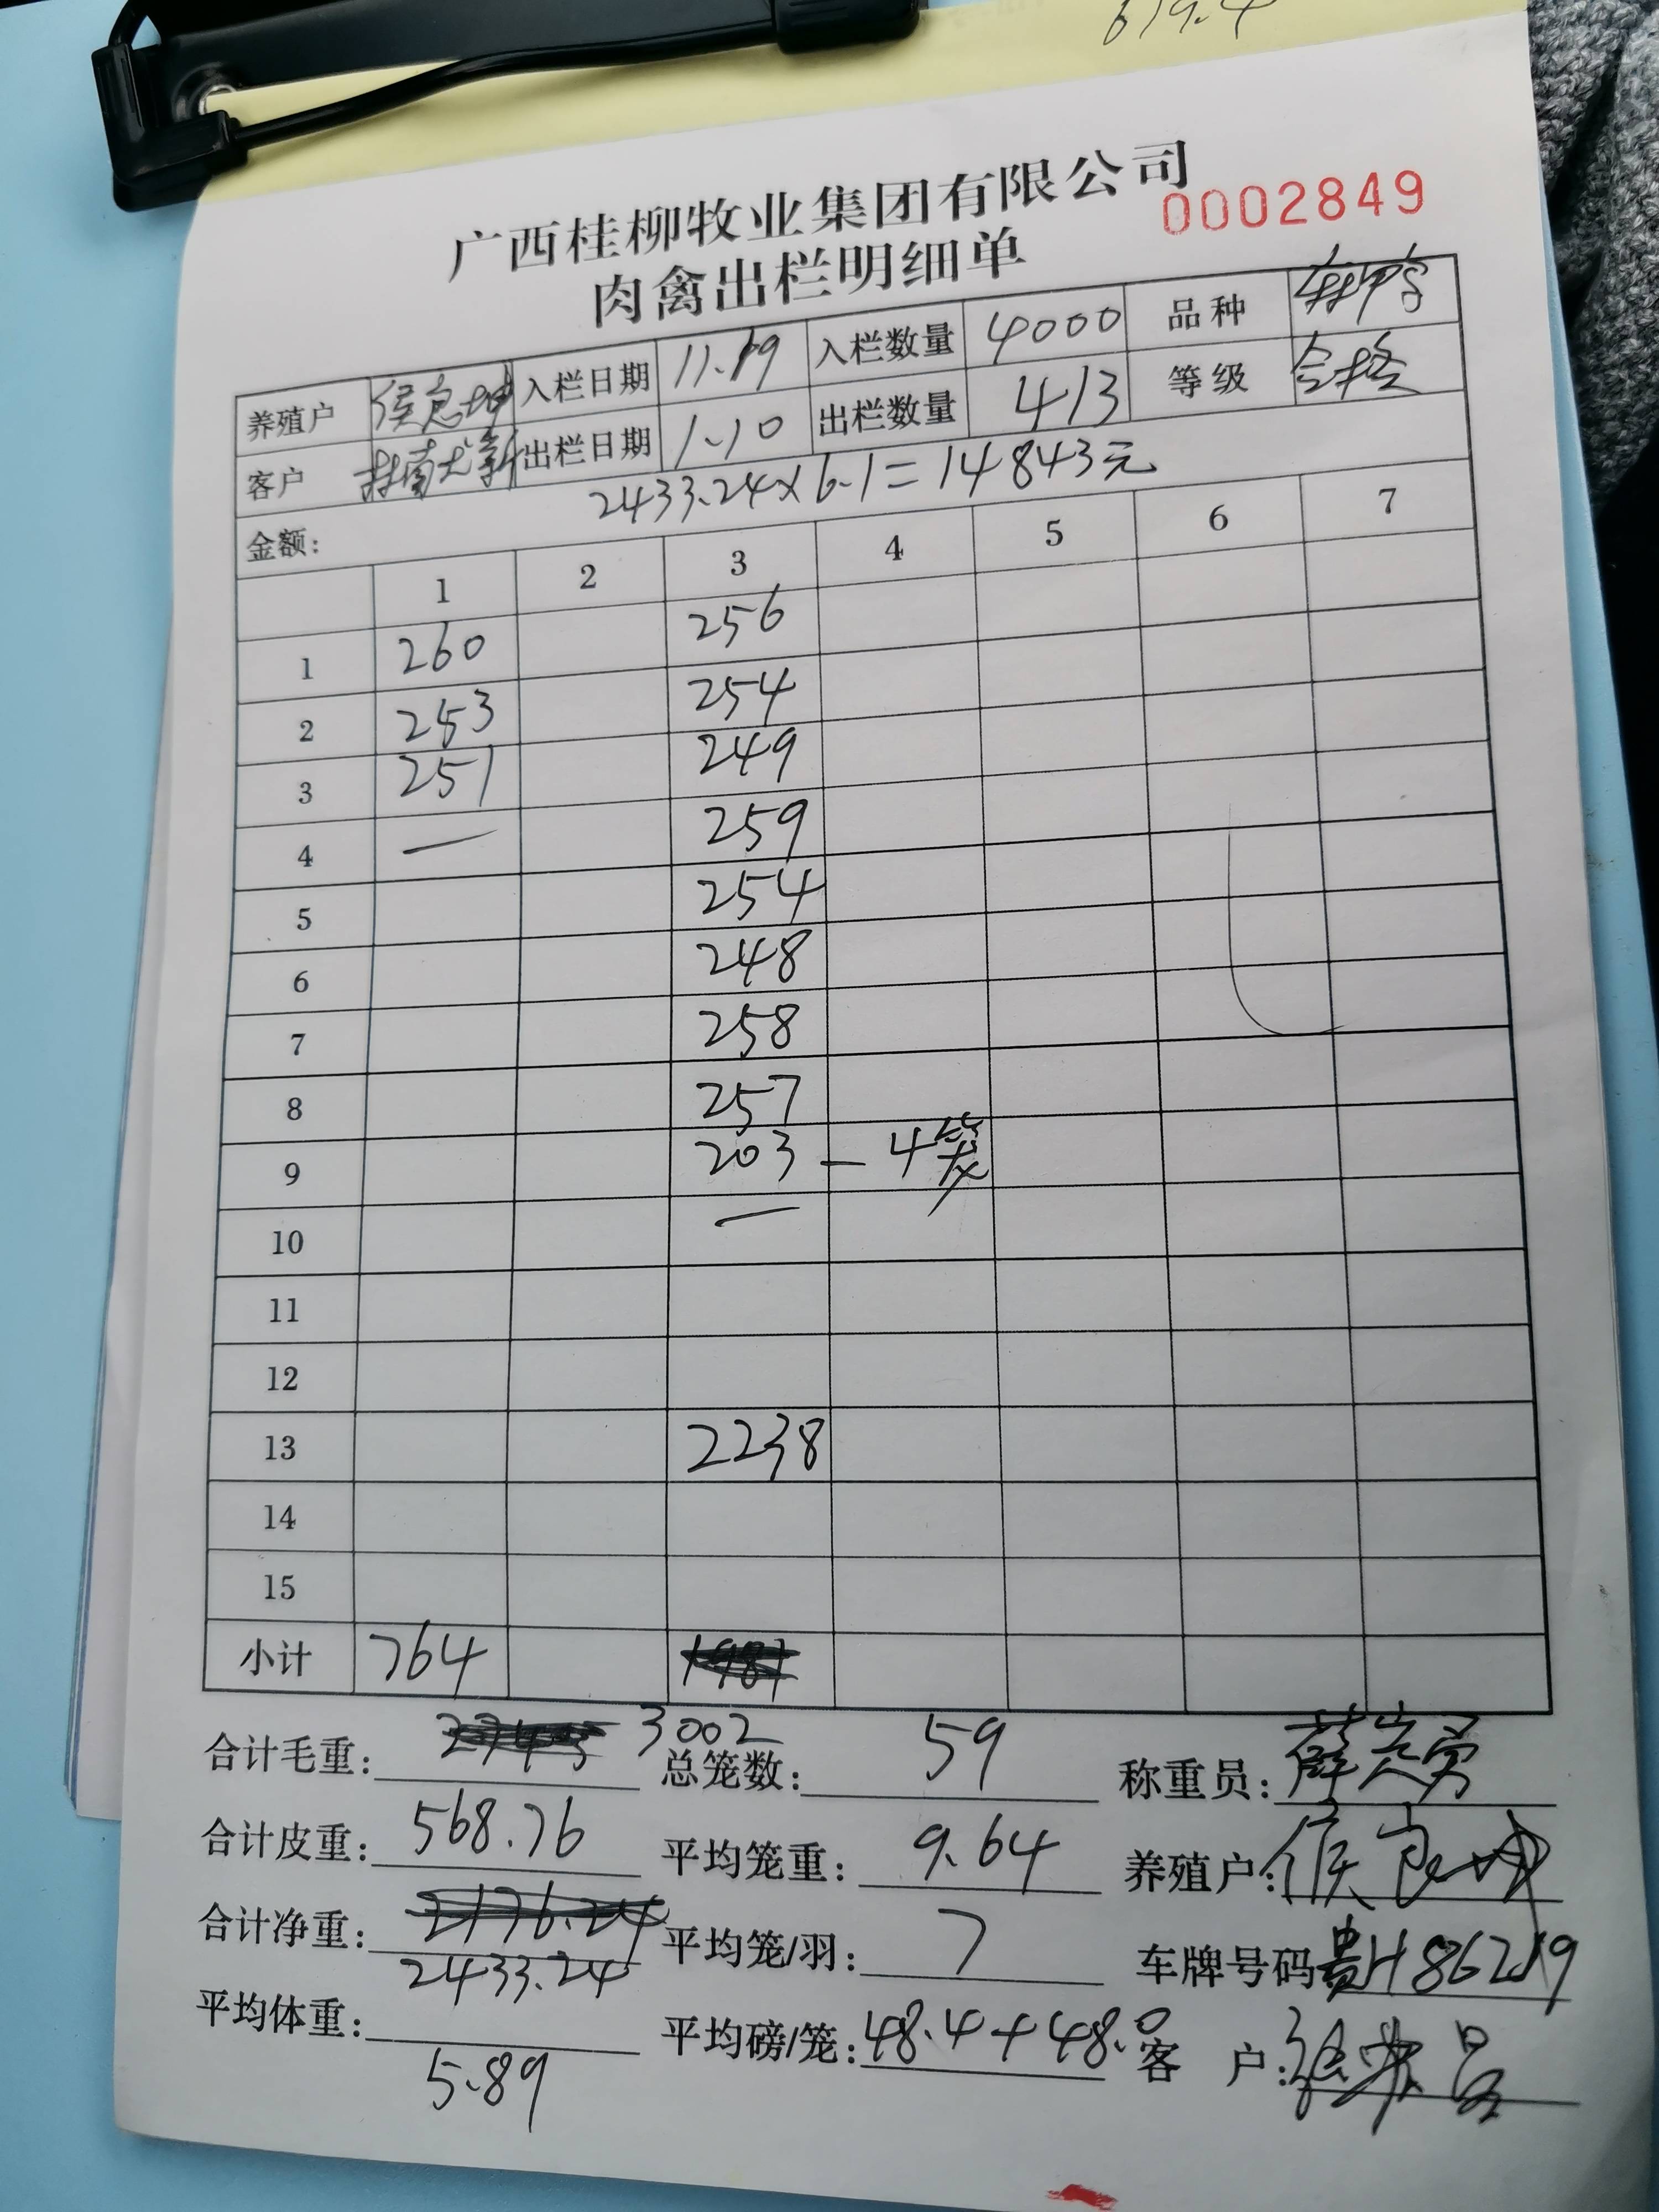 619.4
广西桂柳牧业集团有限公司
0002849
肉禽出栏明细单
养殖户 入栏日期 11.19 入栏数量 4000 品种
客户 出栏日期 1.10 出栏数量 413 等级 合格
金额: 2433.24×6.1=14843元
1 2 3 4 5 6 7
1 260 256
2 253 254
3 251 249
4 — 259
5 254
6 248
7 258
8 257
9 203 — 4笼
10 —
11
12
13 2238
14
15
小计 764 1981
合计毛重: 2745 3002 总笼数: 59 称重员:
合计皮重: 568.76 平均笼重: 9.64 养殖户:
合计净重: 2176.24 2433.24 平均笼/羽: 7 车牌号码 贵H86219
平均体重: 5.89 平均磅/笼: 48.4+48.0 客 户: